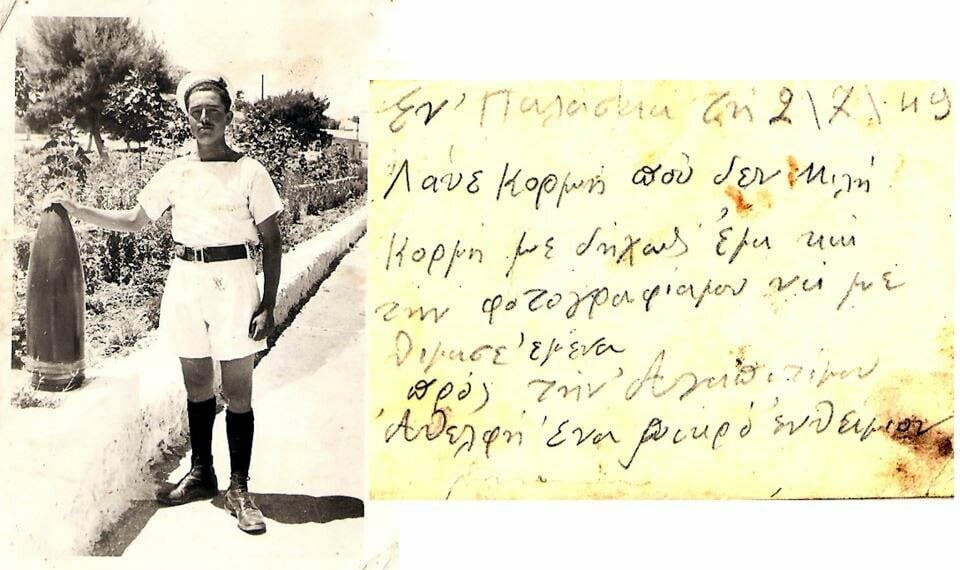 Εν' Παλάσκα τη 2\7\49
Λάβε κορμη που δεν μιλη
κορμη με δήχως έμα και
την φοτογραφίαμου να με
θιμασε εμένα
προς την Αγαπιτίμου
Αθελφή ένα μικρό ένθειμιον